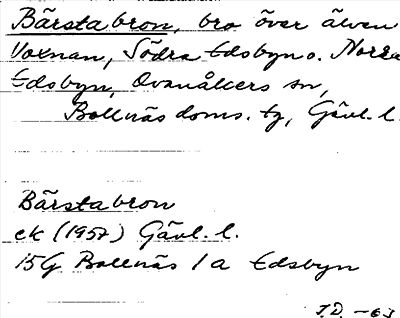 Bärstabron, bro över älven
Voxnan, Södra Edsbyn o. Norra
Edsbyn, Ovanåkers sn,
Bollnäs doms. tg, Gävl. l.
Bärstabron
ek (1957) Gävl. l.
15G Bollnäs 1a Edsbyn
T.D. -63